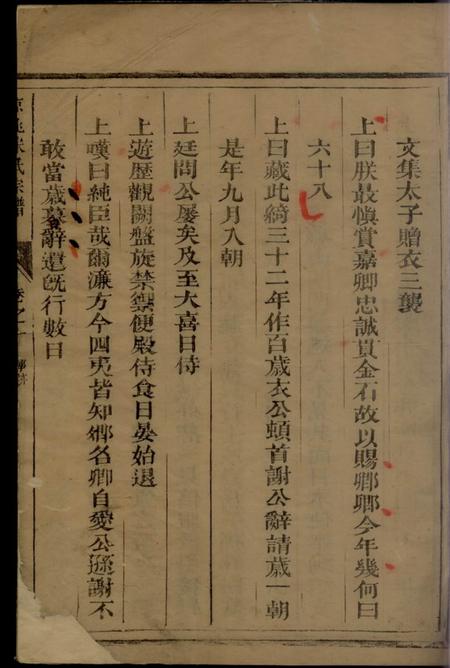 文集太子贈衣三襲
上曰朕最慎賞嘉卿忠誠貫金石故以賜卿卿今年幾何曰
六十八
上曰藏此綺三十二年作百歲衣公頓首謝公辭請歲一朝
是年九月入朝
上廷問公屢矣及至大喜日侍
上遊歷觀闕盤旋禁禦便殿侍食日晏始退
上嘆曰純臣哉爾濂方今四夷皆知卿名卿自愛公遜謝不
敢當歲暮辭還旣行數日
氏宗譜
卷之一